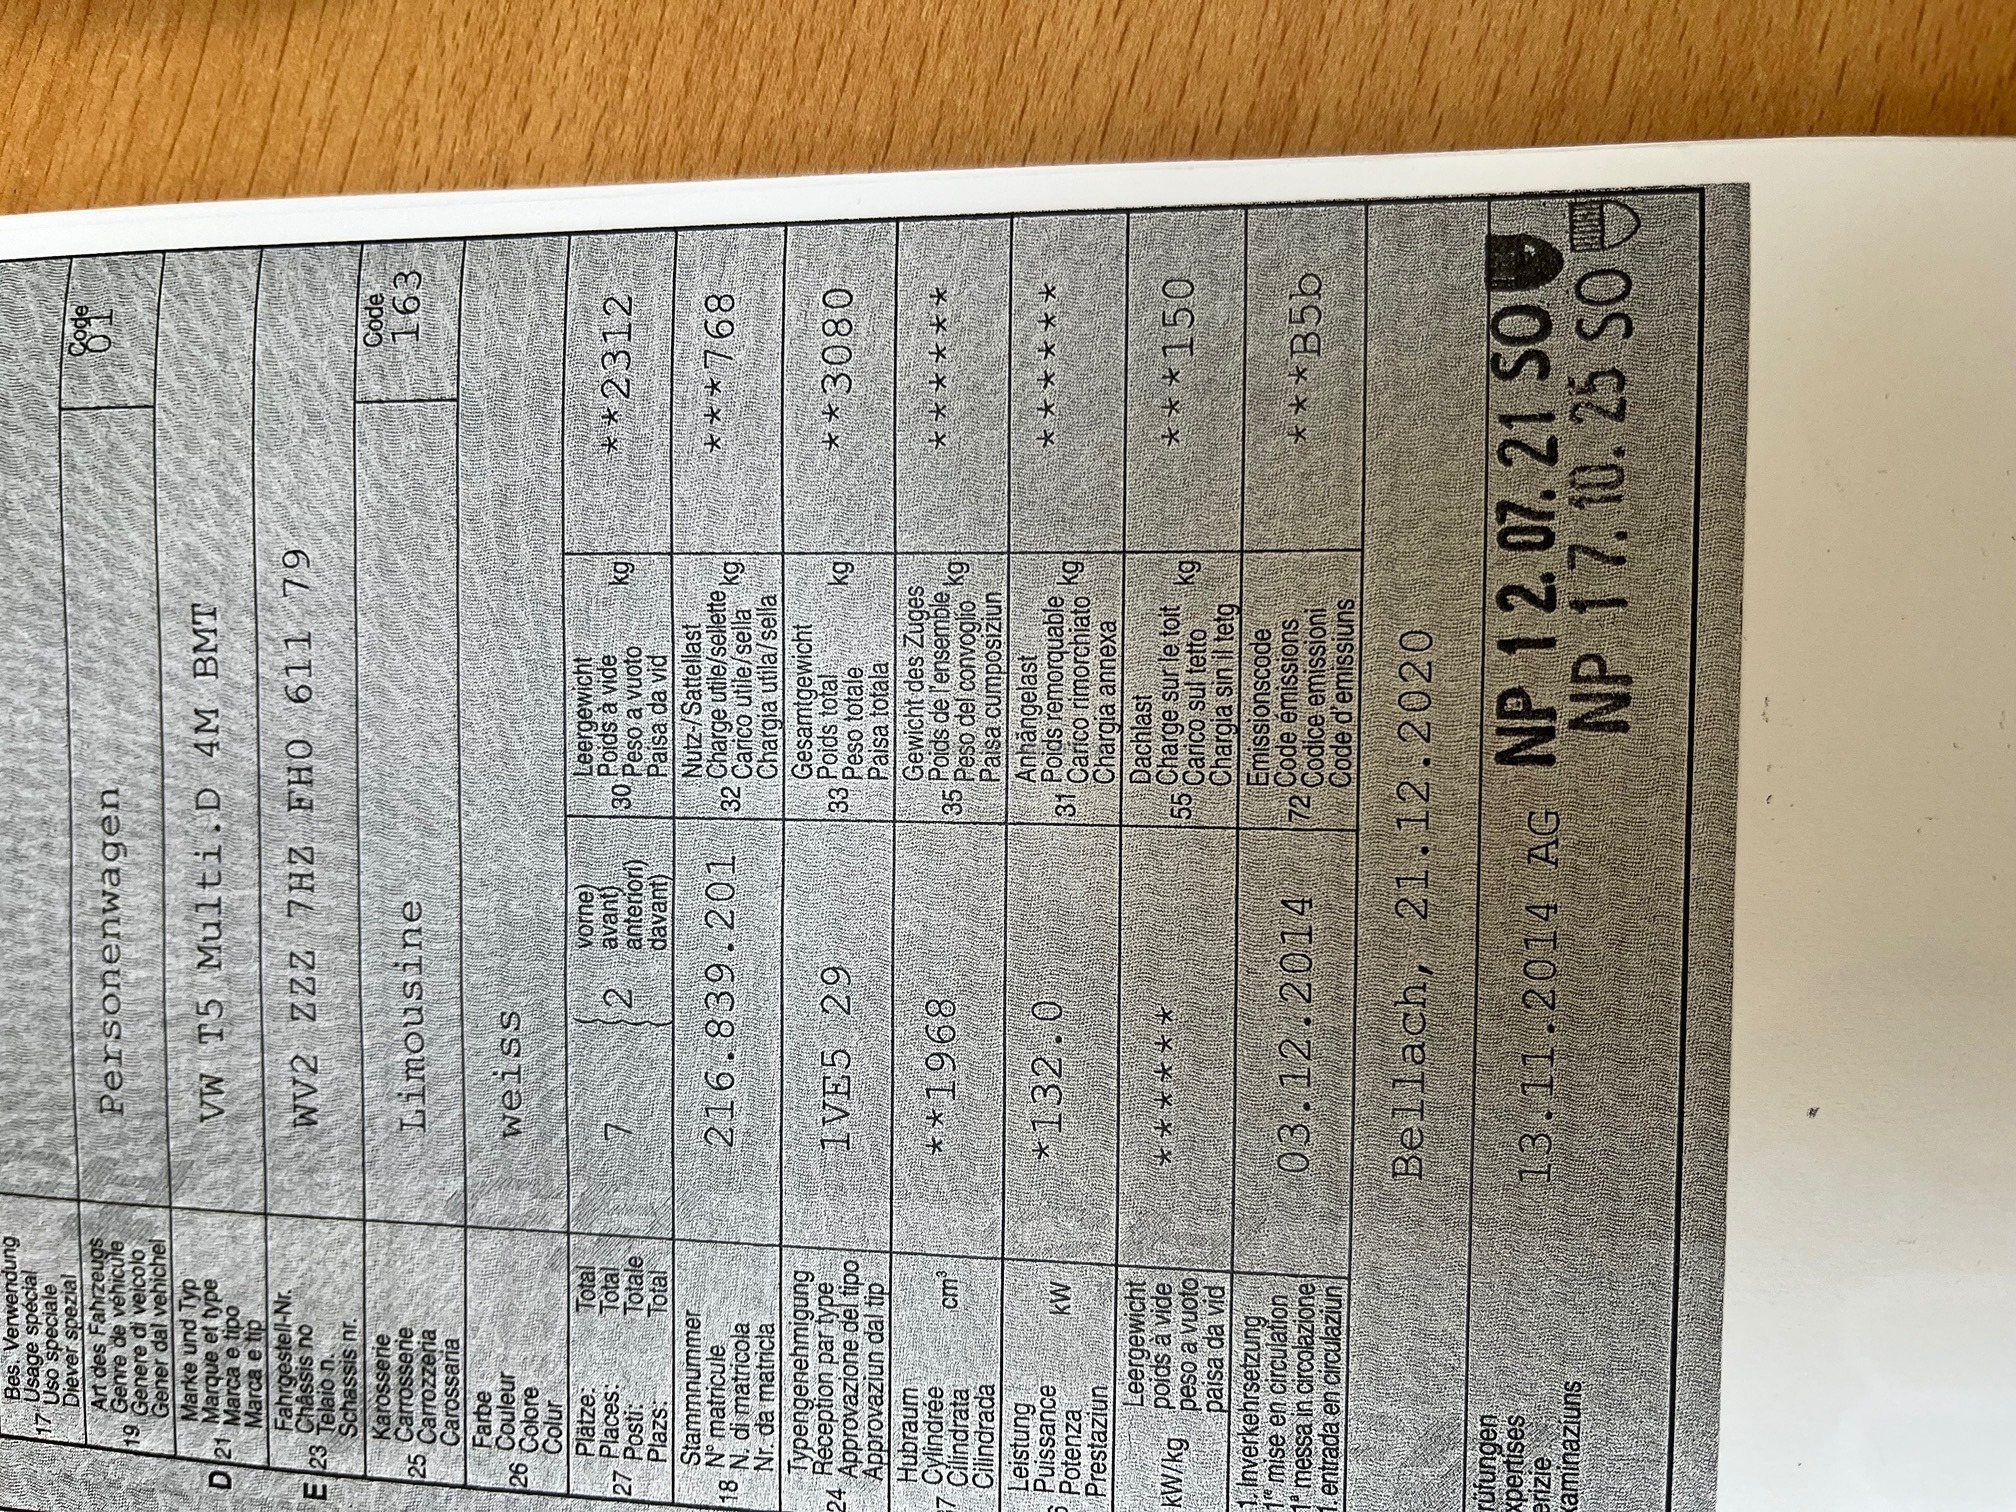 Bes. Verwendung
17 Usage spécial
Uso speciale
Diever spezial
Art des Fahrzeugs
19 Genre de véhicule
Genere di veicolo
Gener dal vehichel
Personenwagen
Code
01
D 21 Marke und Typ
Marque et type
Marca e tipo
Marca e tip
VW T5 Multi.D 4M BMT
E 23 Fahrgestell-Nr.
Châssis no
Telaio n.
Schassis nr.
WV2 ZZZ 7HZ FH0 611 79
Karosserie
25 Carrosserie
Carrozzeria
Carossaria
Limousine
Code
163
Farbe
26 Couleur
Colore
Colur
weiss
27 Plätze: Total
Places: Total
Posti: Totale
Plazs: Total
7 { 2 vorne)
avant)
anteriori)
davant)
Leergewicht
30 Poids à vide kg
Peso a vuoto
Paisa da vid
**2312
Stammnummer
18 N° matricule
N. di matricola
Nr. da matricla
216.839.201
Nutz-/Sattellast
32 Charge utile/sellette kg
Carico utile/sella
Chargia utila/sella
***768
Typengenehmigung
24 Réception par type
Approvazione del tipo
Approvaziun dal tip
1VE5 29
Gesamtgewicht
33 Poids total kg
Peso totale
Paisa totala
**3080
Hubraum
7 Cylindrée cm³
Cilindrata
Cilindrada
**1968
Gewicht des Zuges
35 Poids de l'ensemble kg
Peso del convoglio
Paisa cumposiziun
*******
Leistung
Puissance kW
Potenza
Prestaziun
*132.0
Anhängelast
31 Poids remorquable kg
Carico rimorchiato
Chargia annexa
*******
kW/kg Leergewicht
poids à vide
peso a vuoto
paisa da vid
*******
Dachlast
55 Charge sur le toit kg
Carico sul tetto
Chargia sin il tetg
***150
1. Inverkehrsetzung
1re mise en circulation
1a messa in circolazione
1. entrada en circulaziun
03.12.2014
Emissionscode
72 Code émissions
Codice emissioni
Code d'emissiuns
***B5b
Bellach, 21.12.2020
rüfungen
xpertises
enzie
xaminaziuns
13.11.2014 AG NP 12.07.21 SO
NP 17.10.25 SO